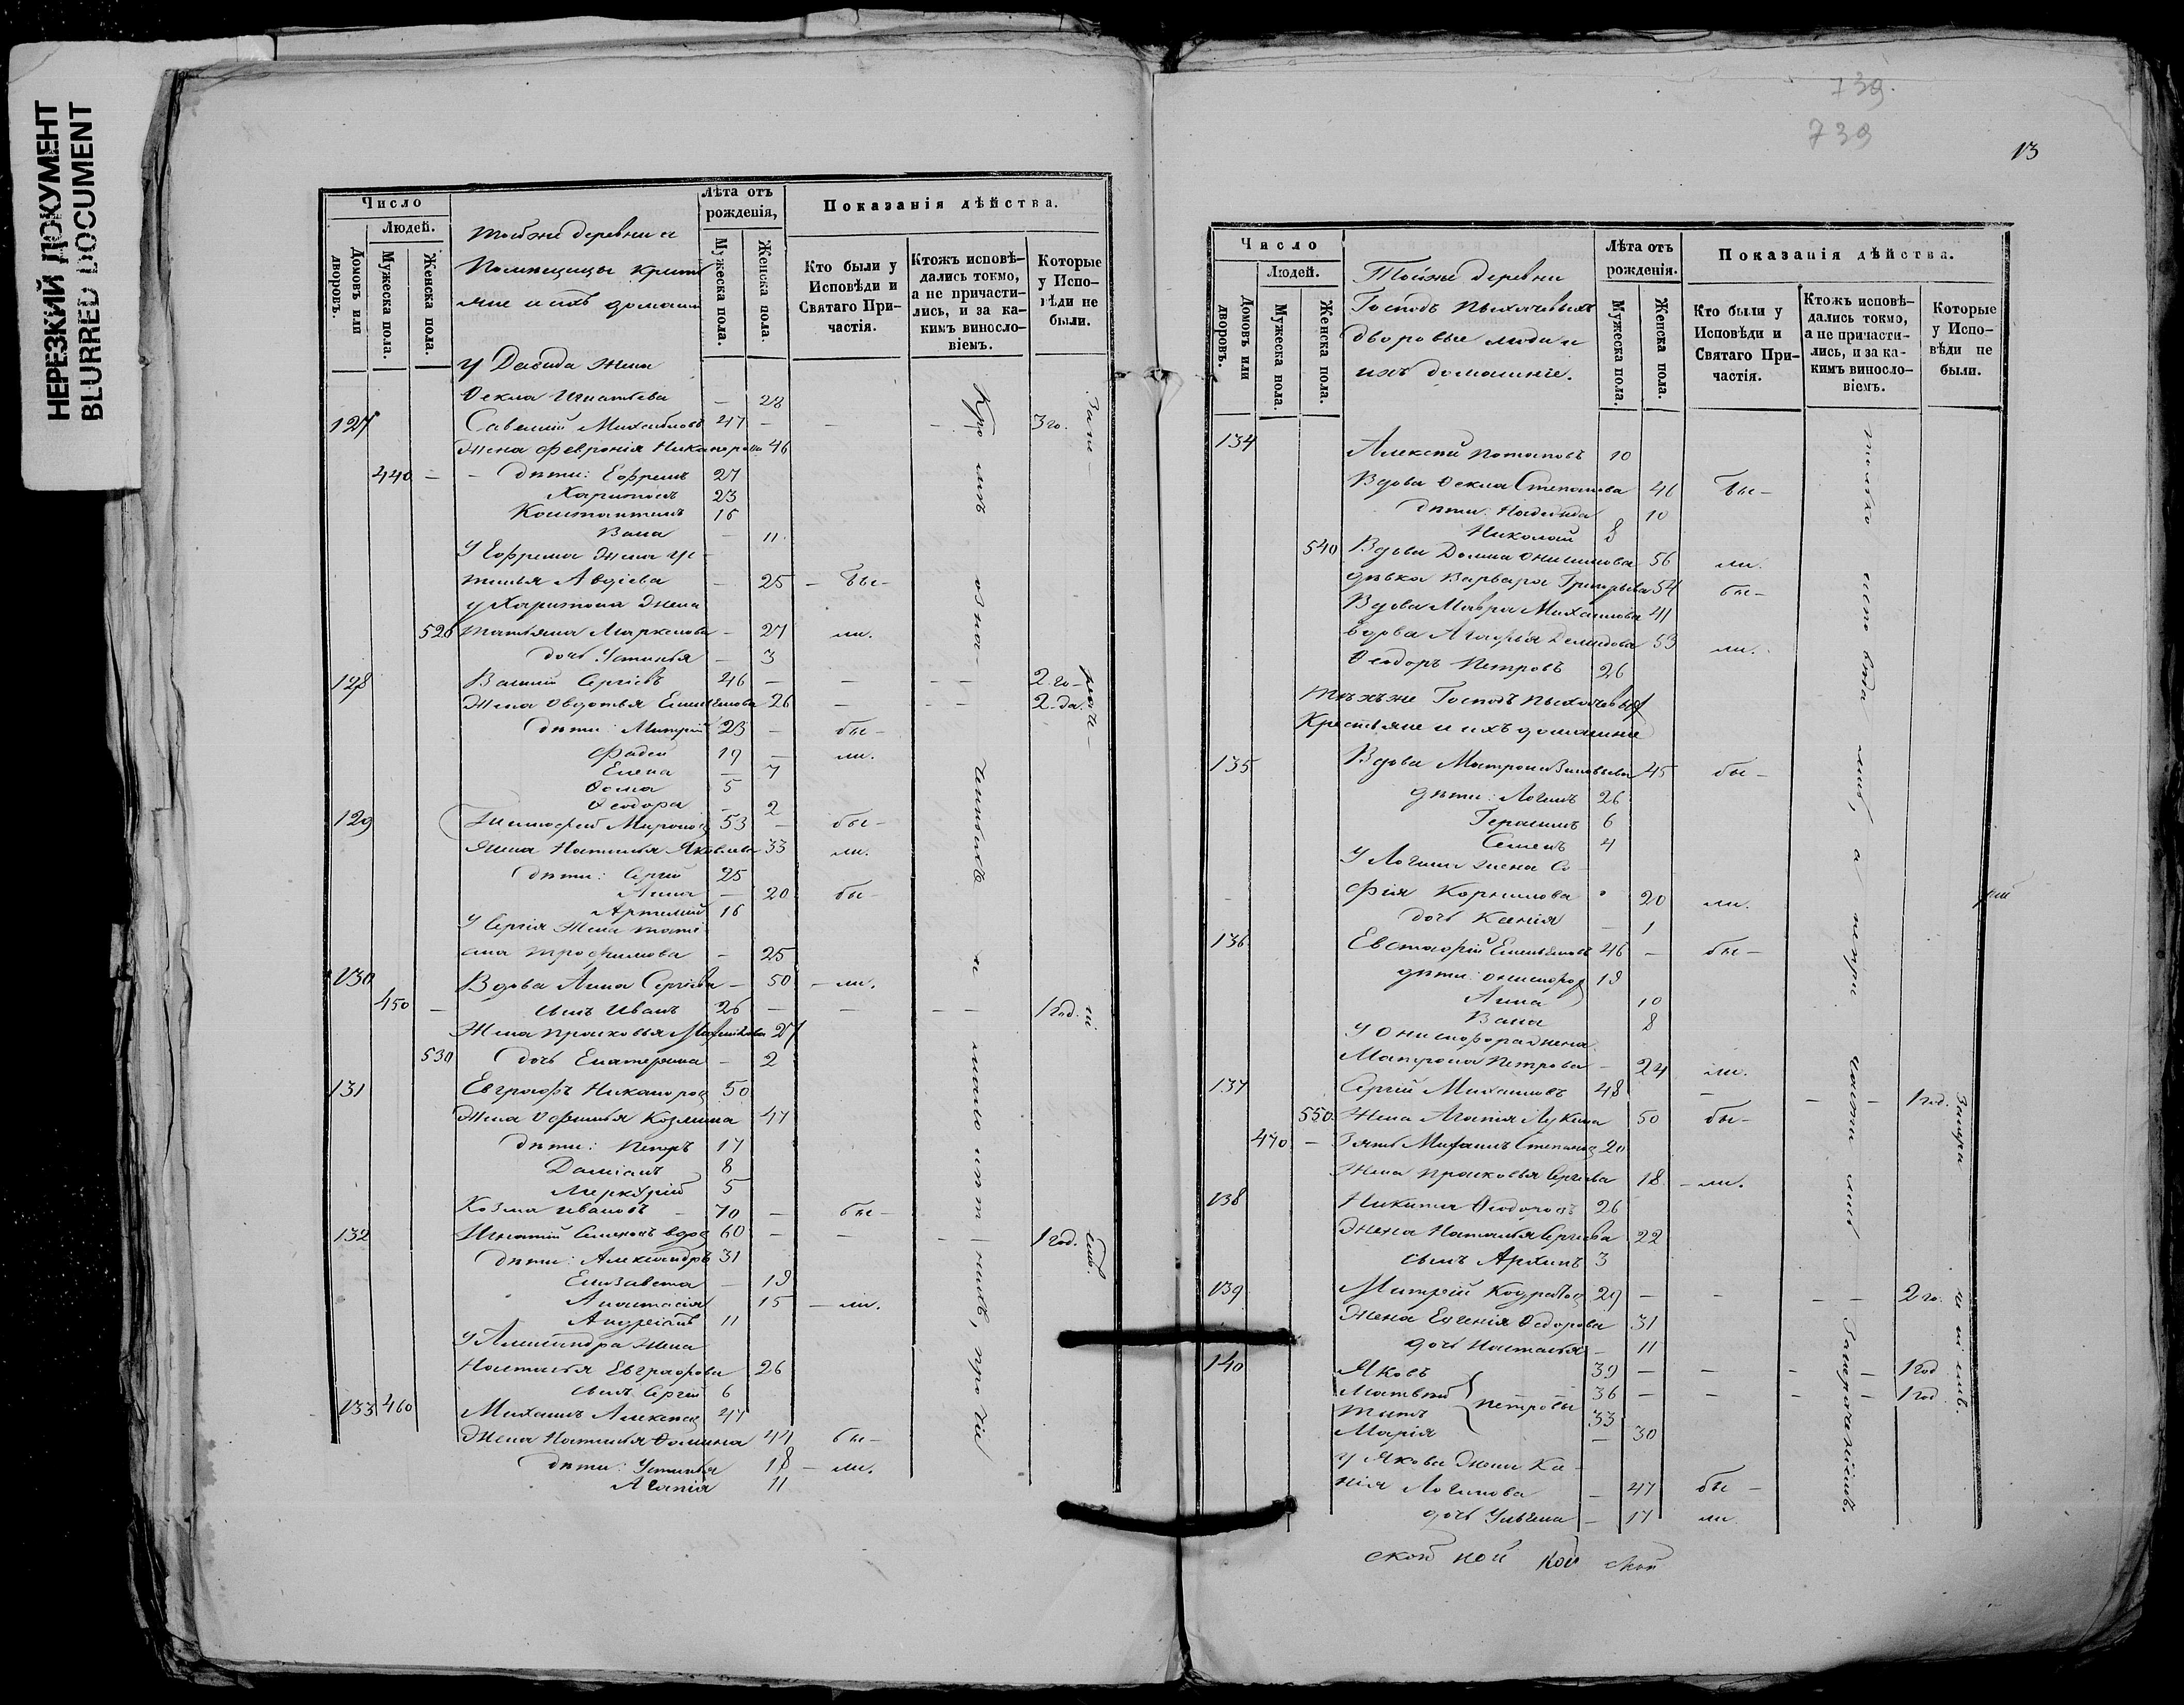 НЕРЕЗКИЙ ДОКУМЕНТ
BLURRED DOCUMENT
Число
Людей.
Домовъ или дворовъ.
Мужеска пола.
Женска пола.
тойже деревни и
Помещицы крест
яне и ихъ домашн
Лѣта отъ рожденія,
Мужеска пола.
Женска пола.
Показанія дѣйства.
Кто были у Исповѣди и Святаго Причастія.
Ктожъ исповѣдались токмо, а не причастились, и за какимъ винословіемъ.
Которые у Исповѣди не были.
у Давида жена
Ѳекла Игнатьева — 28
127 Савелий Михайловъ 47 — — 3 го.
жена Феврония Никанорова 46
440 — дѣти: Ефремъ 27
Харитонъ 23
Константинъ 16
Васса — 11
У Ефрема жена Ус-
тинья Авдіева — 25 — бы-
у Харитона жена
528 татьяна Маркелова — 27 ли.
дочь Устинья — 3
128 Василій Сергіевъ 46 — — — 2 го-
жена Овдотья Емельянова 26 — — 2-да.
дѣти: Митрій 23 — бы-
Фадей 19 — ли.
Елена — 7
Ѳома 5
Ѳеодора — 2
129 Тимофей Мироновъ 53 — бы-
жена Наталья Яковлева 33 ли.
дѣти: Сергій 25
Анна — 20 бы-
Артемий 16
У Сергія жена тать
яна трофимова — 25
130 Вдова Анна Сергіева — 50 — ли.
450 — сынъ Иванъ 26 — — — 1 год.
жена прасковья 27
530 дочь Екатерина — 2
131 Евграфъ Никаноров 50
жена Ѳофинья Козмина 47
дѣти: Петръ 17
Даміанъ 8
Меркурій 5
Козма Ивановъ — 70 — бы-
132 Игнатій Семеновъ вдов 60 — — — 1 год.
дѣти: Александръ 31
Елизавета — 19
Анастасія 15 — ли.
Андреянъ 11
У Александра жена
Наталья Евграфова 26
сынъ Сергій 6
133 460 Михаилъ Алексеев 47
жена Наталья Ѳомина 44 бы-
дѣти: Устинья 18 — ли.
Агапія 11
739.
739
13
Число
Людей.
Домовъ или дворовъ.
Мужеска пола.
Женска пола.
Тойже деревни
Господъ Пыхачевыхъ
дворовые люди и
ихъ домашніе.
Лѣта отъ рожденія.
Мужеска пола.
Женска пола.
Показанія дѣйства.
Кто были у Исповѣди и Святаго Причастія.
Ктожъ исповѣдались токмо, а не причастились, и за какимъ винословіемъ.
Которые у Исповѣди не были.
134
Алексѣй Потаповъ 10
Вдова Ѳекла Степанова 46 бы-
дѣти: Надежда 10
Николай 8
540 Вдова Домна Онисимова 56 ли.
дѣвка Варвара Григорьева 54 бы-
Вдова Мавра Михаилова 41
вдова Агафья Демидова 53 ли.
Ѳеодоръ Петровъ 26
тѣхъже Господъ Пыхачевых
Крестьяне и ихъ домашние
135 Вдова Матрона Зиновьева 45 бы-
дѣти: Логинъ 26
Герасимъ 6
Семенъ 4
У Логина жена Со-
фія Корнилова 20 ли.
дочь Ксенія — 1
136 Евстафій Емельяновъ 46 — бы-
дѣти: Онисифор 19
Анна 10
Васса 8
у Онисифора жена
Матрона Петрова — 24 ли.
137 Сергій Михаиловъ 48 — — — 1 год.
550. Жена Агапія Лукина 50 бы-
470 — зять Михаилъ Степанов 20
жена прасковья Сергіева 18 — ли.
138 Никита Ѳеодоровъ 26
жена Наталья Сергіева 22
сынъ Архипъ 3
139 Митрей Кодратов 29 — — — — 2 го.
жена Евгенія Ѳедорова 31
дочь Наталья — 11
140 Яковъ 39 — — — — 1 год
Матвей Петровы 36 — — — — 1 год
титъ 33
Марія — 30
у Якова жена Ксе-
нія Логинова — 47 бы-
дочь Ульяна — 17 ли
ской ной кой ской